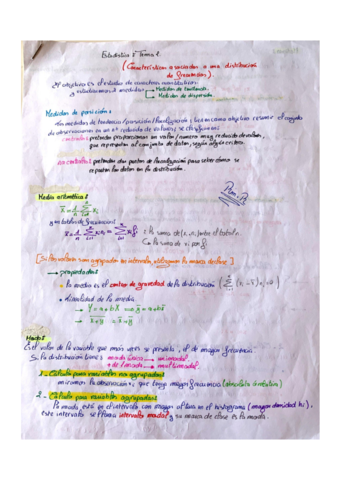 Estadística I Tema 2
(Características asociadas a una distribución
de frecuencias)
El objetivo es el estudio de variables cuantitativas
y estudiaremos 2 medidas → Medidas de tendencia.
→ Medidas de dispersión.
Medidas de posición:
Las medidas de tendencia/posición/localización tienen como objetivo resumir el conjunto
de observaciones en un nº reducido de valores, se clasifican en:
centrales: pretenden proporcionar un valor/número muy reducido de valores,
que representan al conjunto de datos, según algún criterio.
no centrales: pretenden dar puntos de localización para saber cómo se
reparten los datos en la distribución.
Media aritmética:
[Si los valores son agrupados en intervalos, utilizamos la marca de clase]
→ propiedades
La media es el centro de gravedad de la distribución
linealidad de la media.
Moda:
Es el valor de la variable que más veces se presenta, el de mayor frecuencia.
Si la distribución tiene: moda única → unimodal
+ de 1 moda → multimodal.
1- Cálculo para variables no agrupadas
miramos la observación xi que tenga mayor frecuencia
2- Cálculo para variables agrupadas
La moda, está en el intervalo con mayor altura en el histograma (mayor densidad hi),
este intervalo se llama intervalo modal y su marca de clase es la moda.